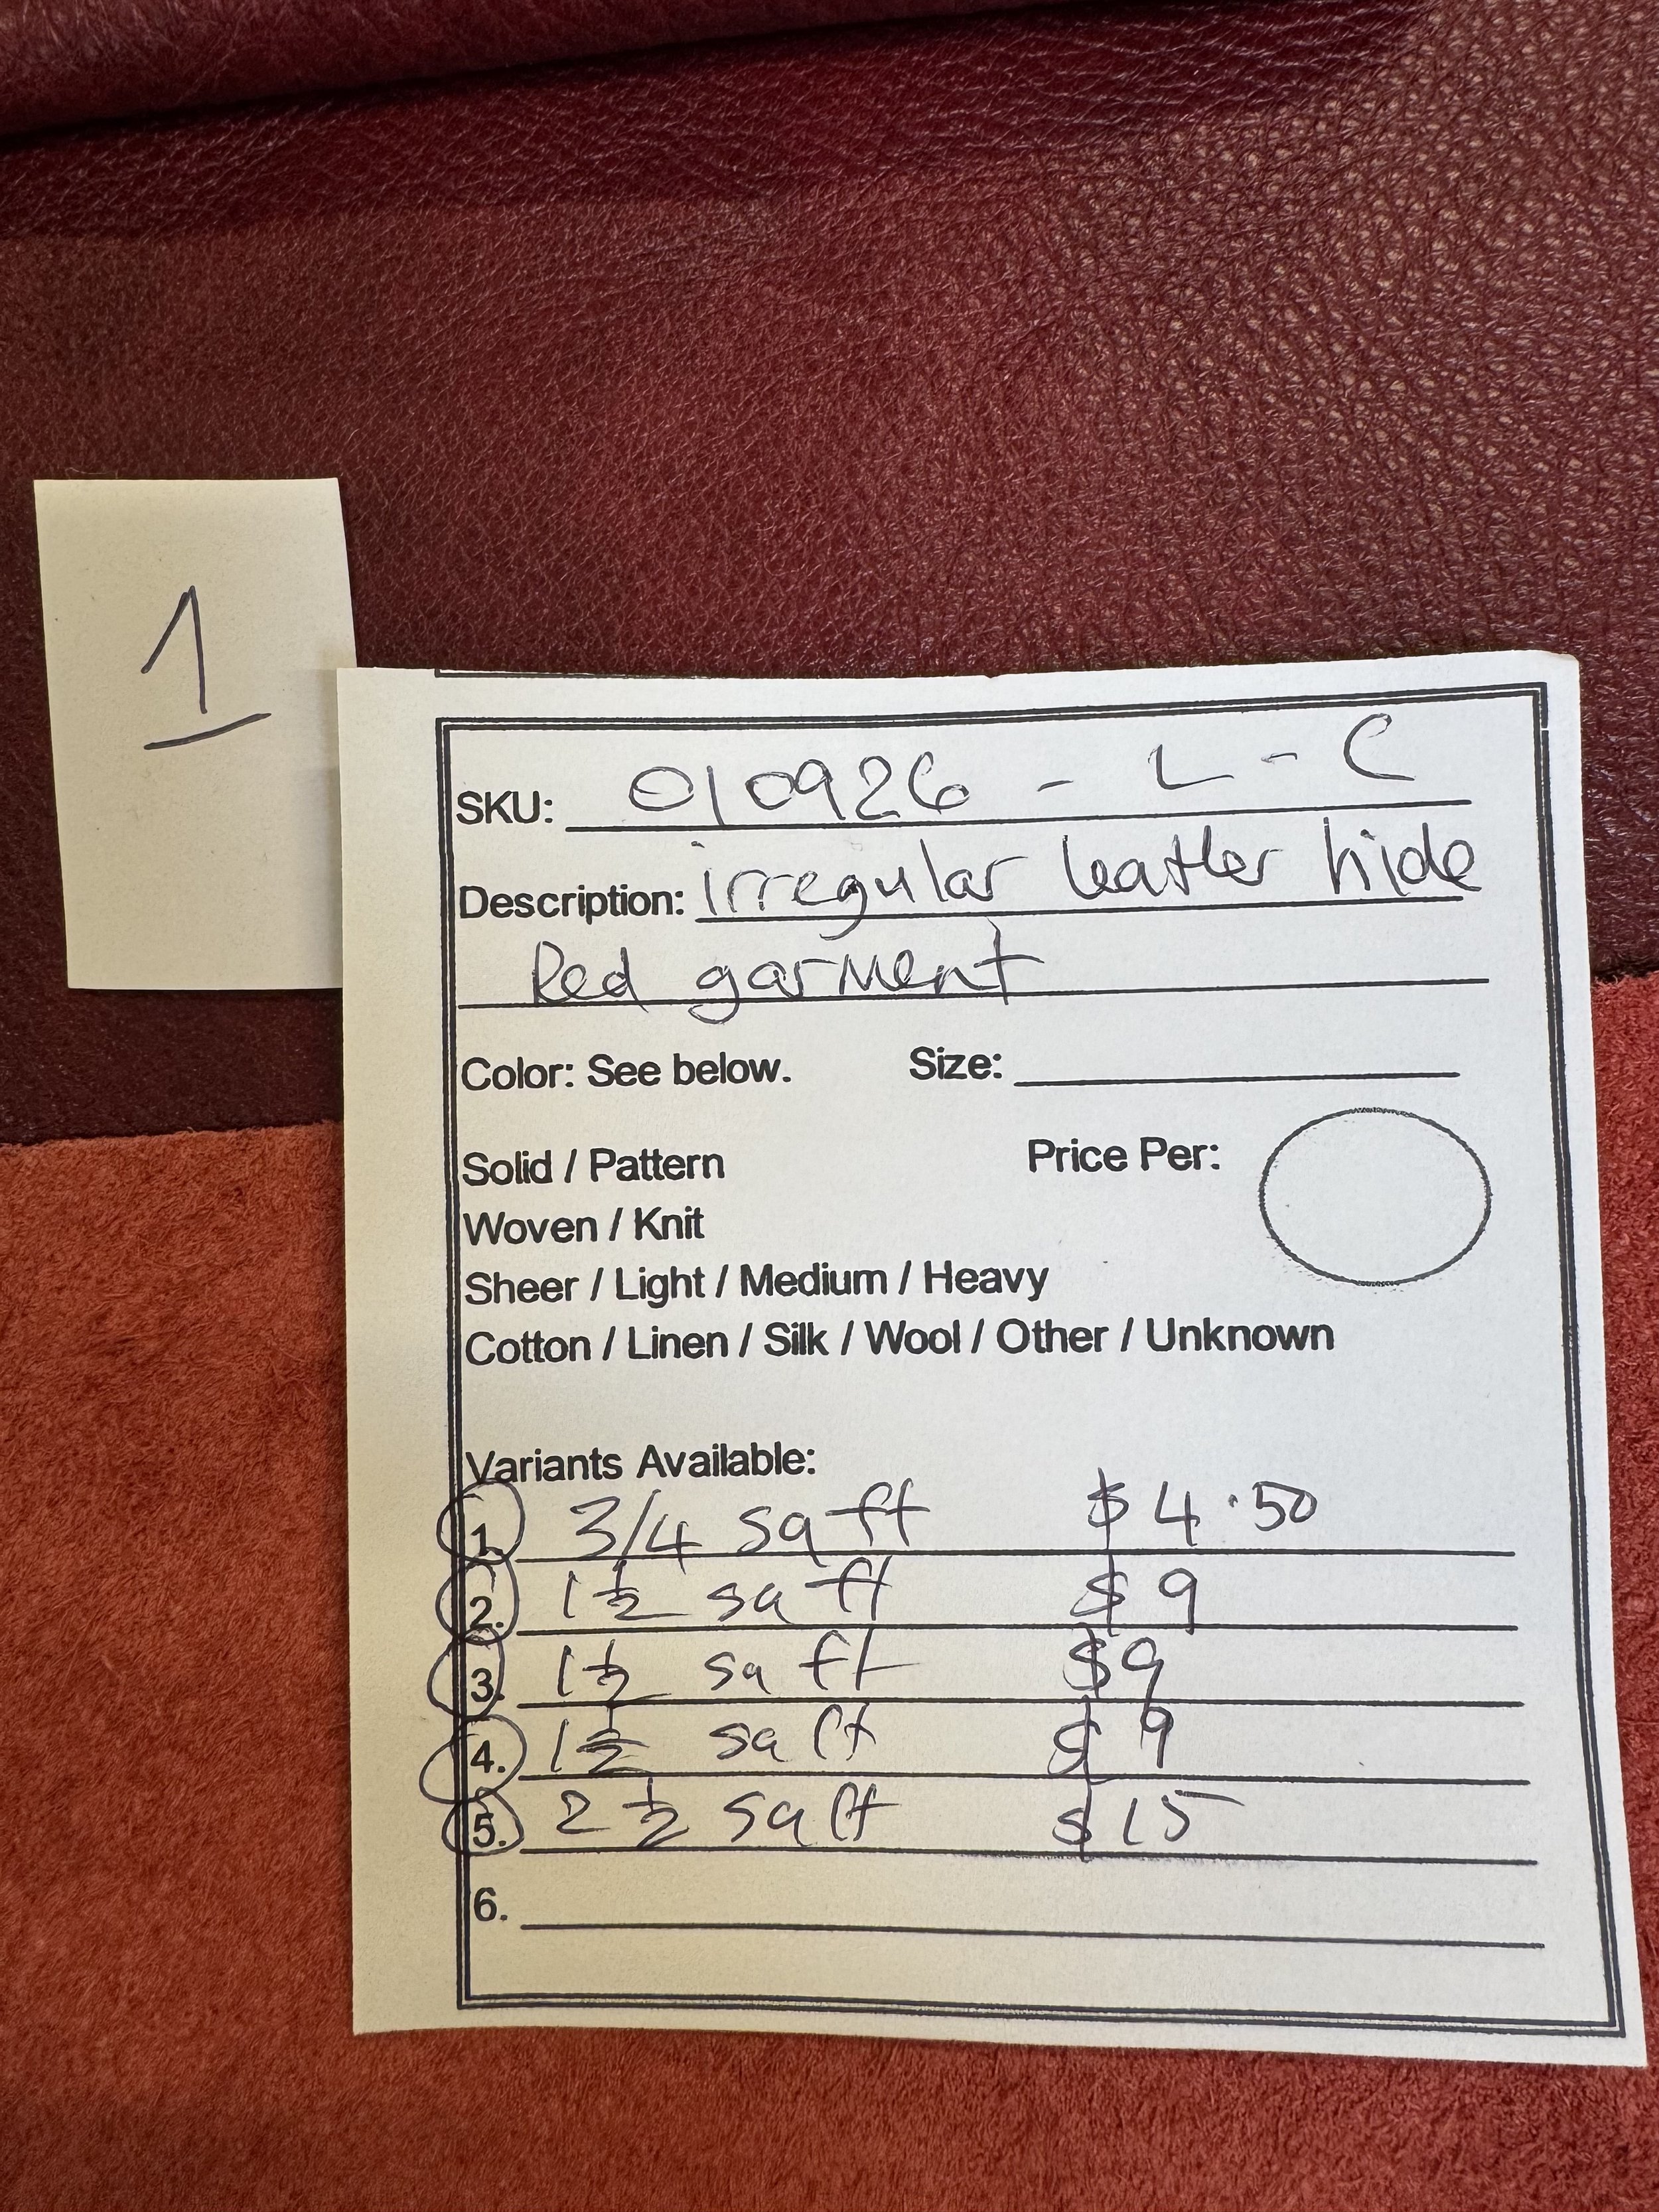 1
SKU: 010926 - L - C
Description: irregular leather hide
Red garment
Color: See below. Size:
Solid / Pattern Price Per:
Woven / Knit
Sheer / Light / Medium / Heavy
Cotton / Linen / Silk / Wool / Other / Unknown
Variants Available:
1. 3/4 sq ft $4.50
2. 1 1/2 sq ft $9
3. 1 1/2 sq ft $9
4. 1 1/2 sq ft $9
5. 2 1/2 sq ft $15
6.